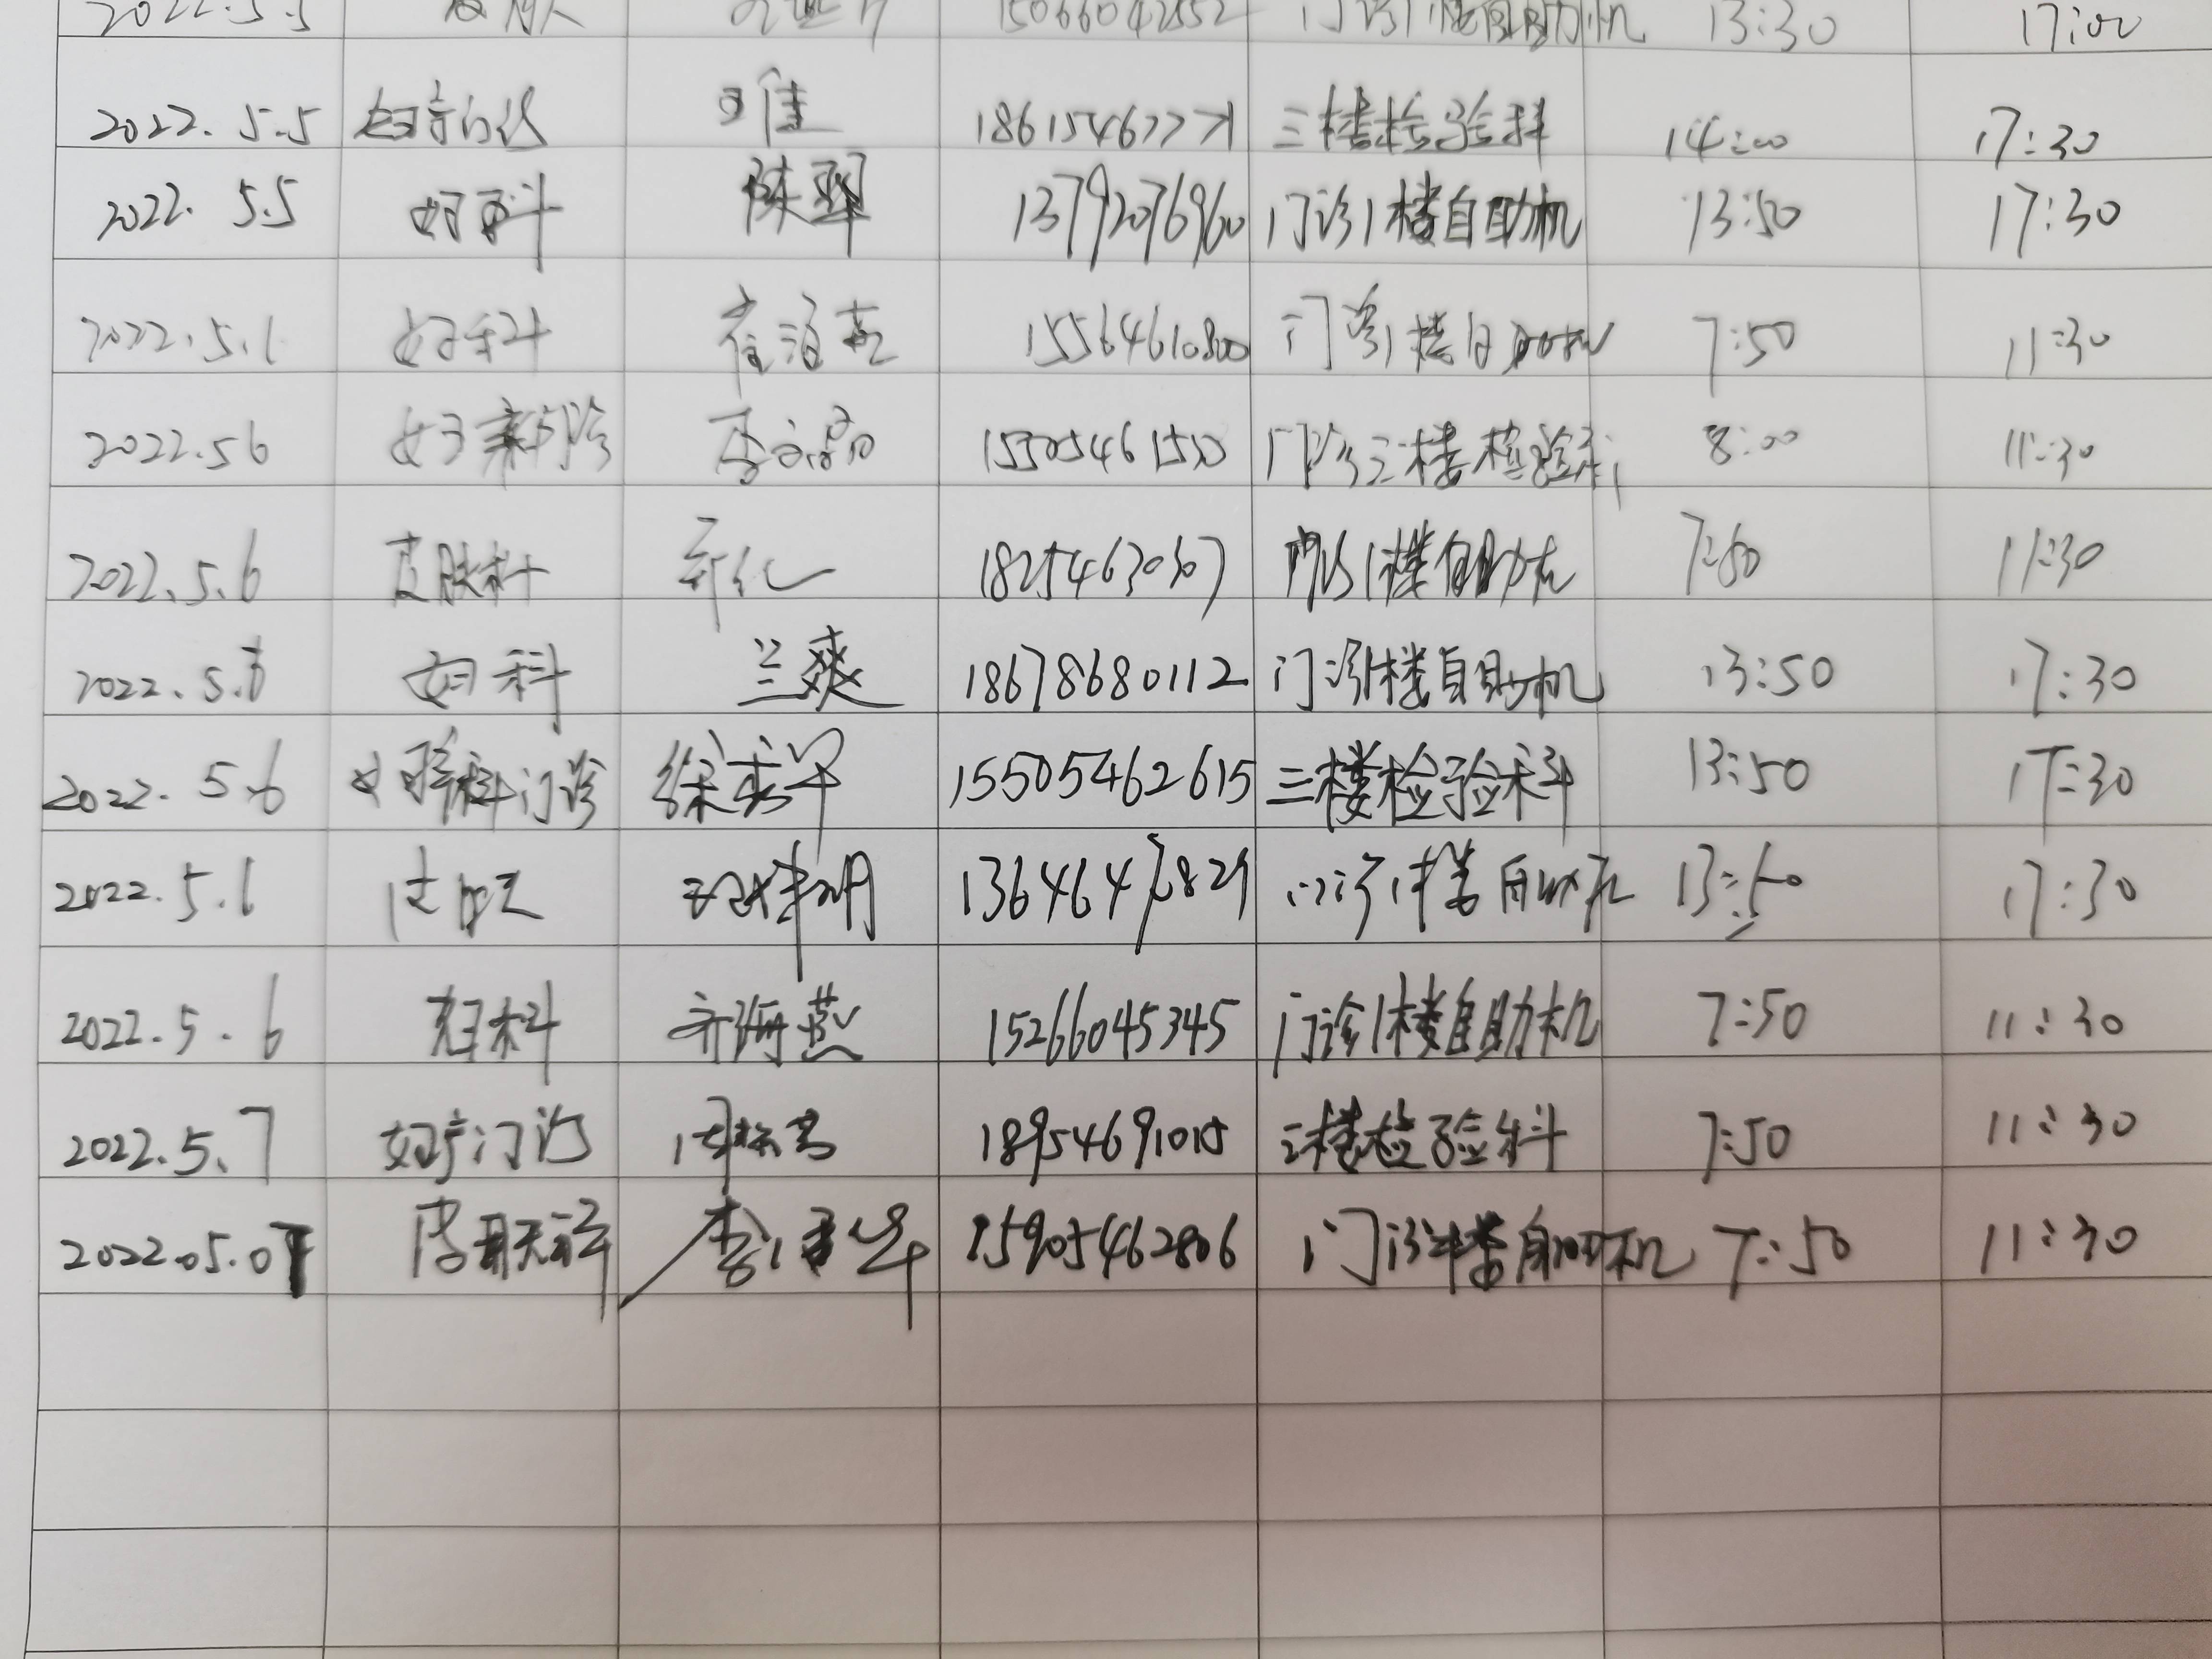 2022.5.5 15066042552 门诊1楼自助机 13:30 17:00
2022.5.5 妇产门诊 佳 三楼检验科 14:00 17:30
2022.5.5 妇科 陈翠 13792076960 门诊1楼自助机 13:50 17:30
2022.5.1 妇科 15564610800 门诊1楼自助机 7:50 11:30
2022.5 6 门诊 15505461550 门诊三楼检验科 8:00 11:30
2022.5.6 皮肤科 18254630307 门诊1楼自助机 7:50 11:30
2022.5.6 妇科 兰爽 18678680112 门诊1楼自助机 13:50 17:30
2022.5.6 妇产科门诊 徐秀华 15505462615 三楼检验科 13:50 17:30
2022.5.6 皮肤 门诊1楼自助机 13:50 17:30
2022.5.6 妇科 齐海燕 15266045345 门诊1楼自助机 7:50 11:30
2022.5.7 妇产门诊 18954691015 三楼检验科 7:50 11:30
2022.05.07 皮肤科 李 华 15905462806 门诊1楼自助机 7:50 11:30